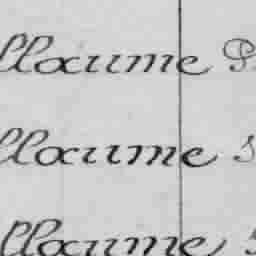 llaume P
llaume S
llaume S